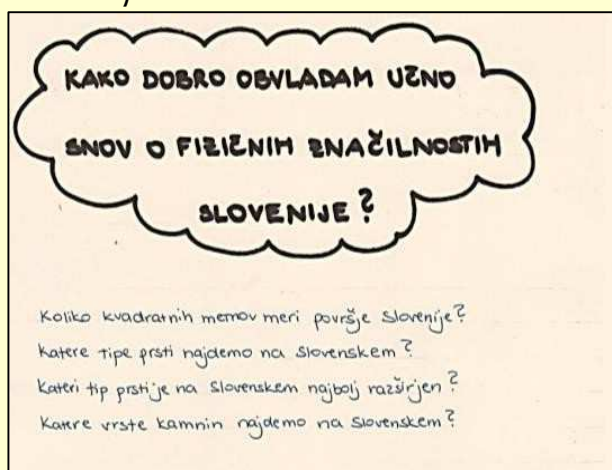 KAKO DOBRO OBVLADAM UČNO
SNOV O FIZIČNIH ZNAČILNOSTIH
SLOVENIJE?
Koliko kvadratnih metrov meri površje Slovenije?
Katere tipe prsti najdemo na Slovenskem?
Kateri tip prsti je na Slovenskem najbolj razširjen?
Katere vrste kamnin najdemo na Slovenskem?